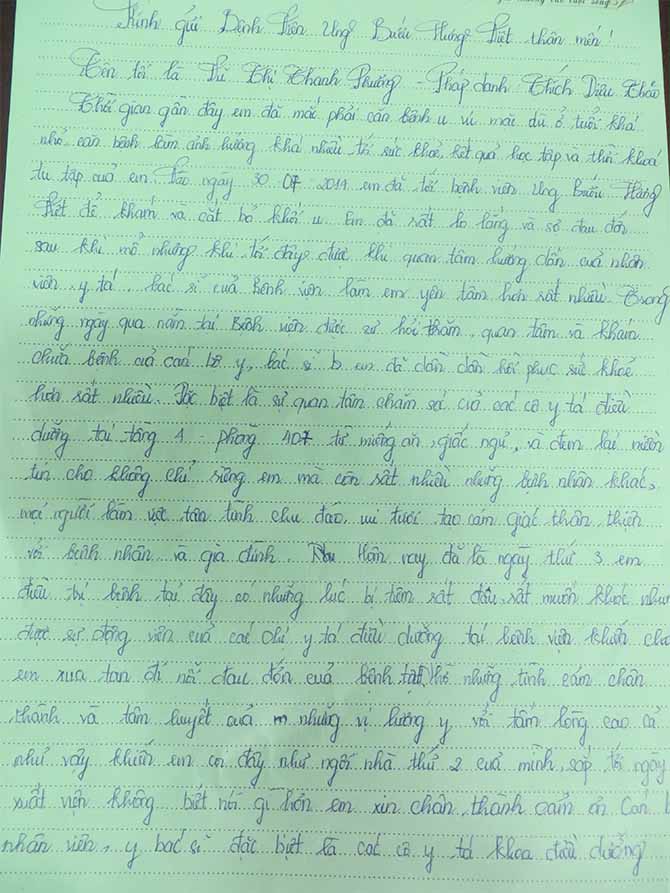 Kính gửi Bệnh Viện Ung Bướu Hưng Việt thân mến!
Tên tôi là Thi Thị Thanh Phương - Pháp danh Thích Diệu Thảo
Thời gian gần đây em đã mắc phải căn bệnh u vú mặc dù ở tuổi khá
nhỏ, căn bệnh làm ảnh hưởng khá nhiều tới sức khoẻ, kết quả học tập và thời khoá
tu tập của em. Vào ngày 30 07 2019 em đã tới bệnh viện Ung Bướu Hưng
Việt để khám và cắt bỏ khối u. Em đã rất lo lắng và sợ đau đớn
sau khi mổ nhưng khi tới đây được khi quan tâm hướng dẫn của nhân
viên, y tá, bác sĩ của bệnh viện làm em yên tâm hơn rất nhiều. Trong
những ngày qua nằm tại Bệnh viện được sự hỏi thăm, quan tâm và khám
chữa bệnh của cán bộ y, bác sĩ em đã dần dần hồi phục sức khoẻ
hơn rất nhiều. Đặc biệt là sự quan tâm chăm sóc của các cô y tá điều
dưỡng tại tầng 4 - phòng 407 từ miếng ăn, giấc ngủ, và đem lại niềm
tin cho không chỉ riêng em mà còn rất nhiều những bệnh nhân khác,
mọi người làm việc tận tình chu đáo, vui tươi tạo cảm giác thân thiện
với bệnh nhân và gia đình. Hôm nay đã là ngày thứ 3 em
điều trị bệnh tại đây có những lúc bị tiêm rất đau, rất muốn khóc nhưng
được sự động viên của các chị y tá điều dưỡng tại bệnh viện khiến cho
em xua tan đi nỗi đau đớn của bệnh tật, những tình cảm chân
thành và tâm huyết của những vị lương y với tấm lòng cao cả
như vậy khiến em coi đây như ngôi nhà thứ 2 của mình, sắp tới ngày
xuất viện không biết nói gì hơn em xin chân thành cảm ơn Cán
nhân viên, y bác sĩ đặc biệt là các cô y tá khoa điều dưỡng